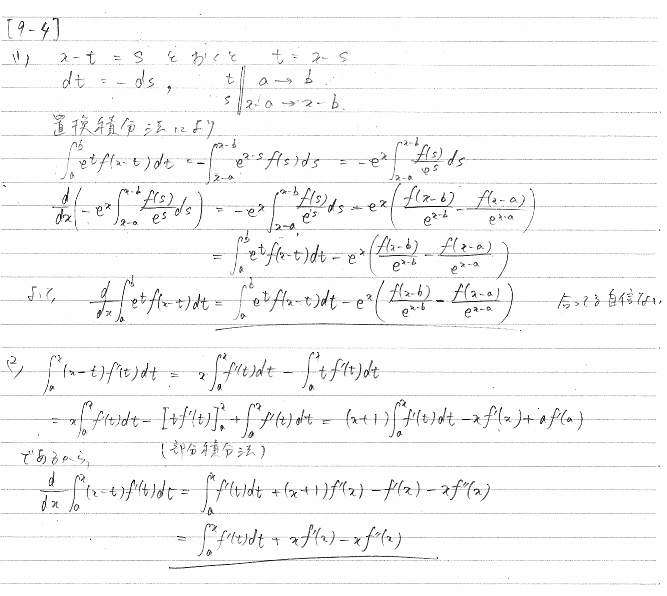 [9-4]
(1) x-t = s とおくと t = x-s
dt = -ds, t ‖ a → b
s ‖ x-a → x-b.
置換積分法により
∫_a^b e^t f(x-t)dt = -∫_{x-a}^{x-b} e^{x-s} f(s)ds = -e^x ∫_{x-a}^{x-b} f(s)/e^s ds
d/dx(-e^x ∫_{x-a}^{x-b} f(s)/e^s ds) = -e^x ∫_{x-a}^{x-b} f(s)/e^s ds - e^x(f(x-b)/e^{x-b} - f(x-a)/e^{x-a})
= ∫_a^b e^t f(x-t)dt - e^x(f(x-b)/e^{x-b} - f(x-a)/e^{x-a})
よって, d/dx ∫_a^b e^t f(x-t)dt = ∫_a^b e^t f(x-t)dt - e^x(f(x-b)/e^{x-b} - f(x-a)/e^{x-a}) 合ってる自信ない
(2) ∫_a^x (x-t)f'(t)dt = x∫_a^x f'(t)dt - ∫_a^x t f'(t)dt
= x∫_a^x f'(t)dt - [t f'(t)]_a^x + ∫_a^x f'(t)dt = (x+1)∫_a^x f'(t)dt - x f'(x) + a f'(a)
(部分積分法)
であるから,
d/dx ∫_a^x (x-t)f'(t)dt = ∫_a^x f'(t)dt + (x+1)f'(x) - f'(x) - x f''(x)
= ∫_a^x f'(t)dt + x f'(x) - x f''(x)